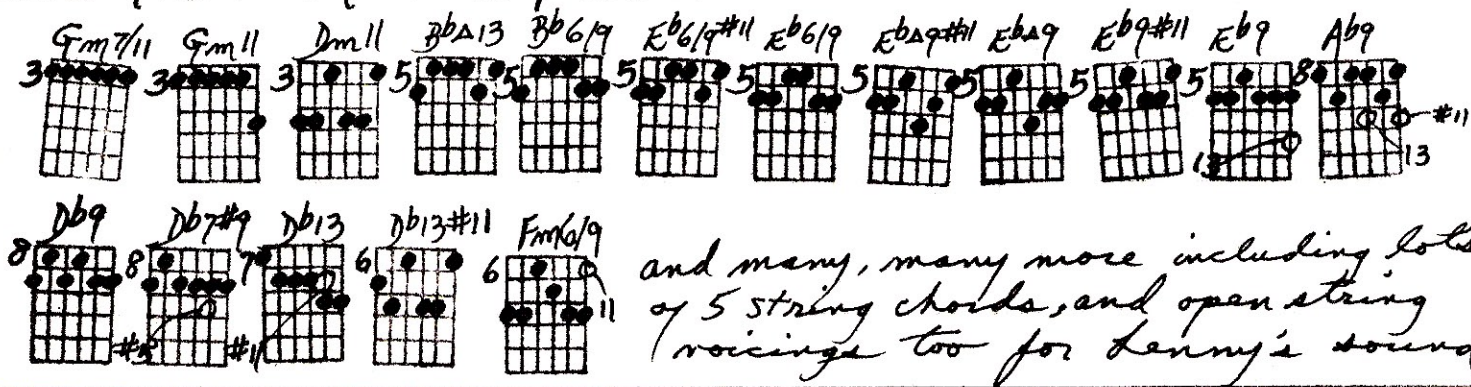 Gm7/11 Gm11 Dm11 Bb△13 Bb6/9 Eb6/9#11 Eb6/9 Eb△9#11 Eb△9 Eb9#11 Eb9 Ab9
3 3 3 5 5 5 5 5 5 5 5 8
#11
13 13
Db9 Db7#9 Db13 Db13#11 Fm6/9
8 8 7 6 6
11
#11
and many, many more including lots
of 5 string chords, and open string
voicings too for Lenny's sound